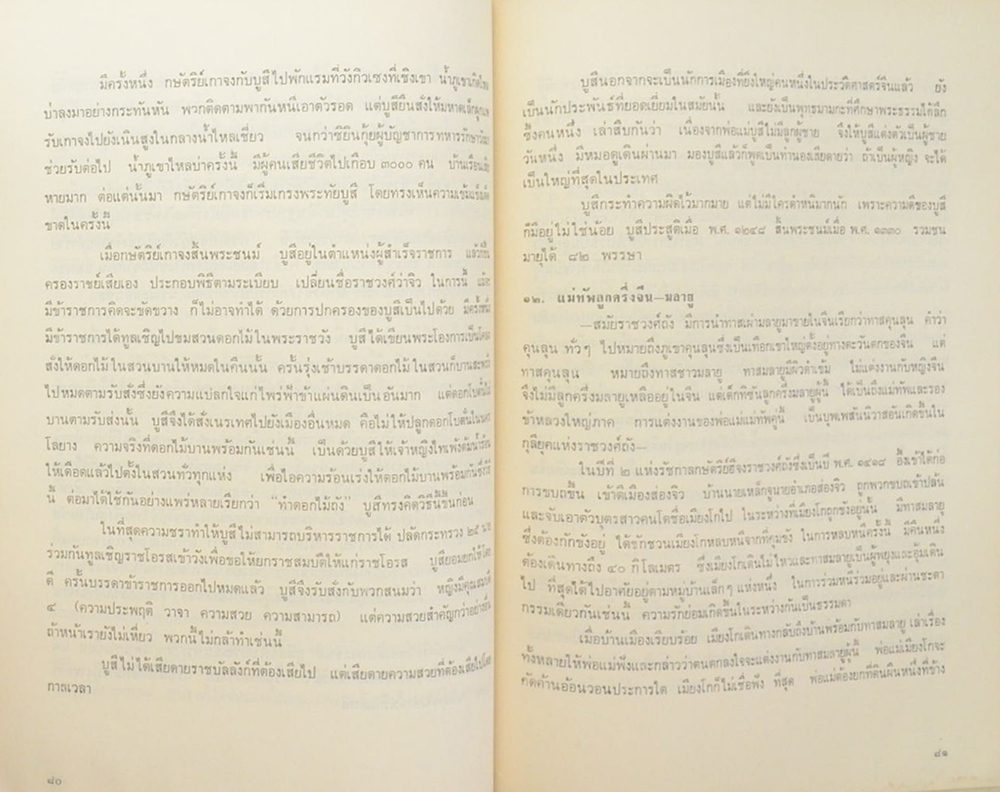 มีครั้งหนึ่ง กษัตริย์เกาจงกับบูสีไปพักแรมที่วังกิวเซงที่เชิงเขา น้ำภูเขาเกิดไหล
บ่าลงมาอย่างกระทันหัน พวกติดตามพากันหนีเอาตัวรอด แต่บูสียืนสั่งให้มหาดเล็ก
รับเกาจงไปยังเนินสูงในกลางน้ำไหลเชี่ยว จนกว่าซิยินกุ้ยผู้บัญชาการทหารรักษาวัง
ช่วยรับต่อไป น้ำภูเขาไหลบ่าครั้งนี้ มีผู้คนเสียชีวิตไปเกือบ ๓๐๐๐ คน บ้านเรือน
หายมาก ต่อแต่นั้นมา กษัตริย์เกาจงก็เริ่มเกรงพระทัยบูสี โดยทรงเห็นความเข้มแข็งเด็ด
ขาดในครั้งนี้
เมื่อกษัตริย์เกาจงสิ้นพระชนม์ บูสีอยู่ในตำแหน่งผู้สำเร็จราชการ แล้วก็ขึ้น
ครองราชย์เสียเอง ประกอบพิธีตามระเบียบ เปลี่ยนชื่อราชวงศ์ว่าจิว ในการนี้ แม้จะ
มีข้าราชการคิดจะขัดขวาง ก็ไม่อาจทำได้ ด้วยการปกครองของบูสีเป็นไปด้วย มีครั้งหนึ่ง
มีข้าราชการได้ทูลเชิญไปชมสวนดอกไม้ในพระราชวัง บูสีได้เขียนพระโองการเป็นโคลง
สั่งให้ดอกไม้ในสวนบานให้หมดในคืนนั้น ครั้นรุ่งเช้าบรรดาดอกไม้ในสวนก็บานสะพรั่ง
ไปหมดตามรับสั่งซึ่งยังความแปลกใจแก่ไพร่ฟ้าข้าแผ่นดินเป็นอันมาก แต่ดอกโบตั๋นไม่
บานตามรับสั่งนั้น บูสีจึงได้สั่งเนรเทศไปยังเมืองอื่นหมด คือไม่ให้ปลูกดอกโบตั๋นในนคร
โลยาง ความจริงที่ดอกไม้บานพร้อมกันเช่นนี้ เป็นด้วยบูสีให้เจ้าหญิงไทเพ้งต้มน้ำร้อน
ให้เดือดแล้วไปตั้งในสวนทั่วทุกแห่ง เพื่อไอความร้อนเร่งให้ดอกไม้บานพร้อมกันซึ่งวิธี
นี้ ต่อมาได้ใช้กันอย่างแพร่หลายเรียกว่า “ทำดอกไม้ถัง” บูสีทรงคิดวิธีนี้ขึ้นก่อน
ในที่สุดความชราทำให้บูสีไม่สามารถบริหารราชการได้ ปลัดกระทรวง ๒๕ นาย
ร่วมกันทูลเชิญราชโอรสเข้าวังเพื่อขอให้ยกราชสมบัติให้แก่ราชโอรส บูสียอมยกให้โดย
ดี ครั้นบรรดาข้าราชการออกไปหมดแล้ว บูสีจึงรับสั่งกับพวกสนมว่า หญิงมีคุณสมบัติ
๔ (ความประพฤติ วาจา ความสวย ความสามารถ) แต่ความสวยสำคัญกว่าอย่างอื่น
ถ้าหน้าเรายังไม่เหี่ยว พวกนี้ไม่กล้าทำเช่นนี้
บูสีไม่ได้เสียดายราชบัลลังก์ที่ต้องเสียไป แต่เสียดายความสวยที่ต้องเสียไปโดย
กาลเวลา
๘๐
บูสีนอกจากจะเป็นนักการเมืองที่ยิ่งใหญ่คนหนึ่งในประวัติศาสตร์จีนแล้ว ยัง
เป็นนักประพันธ์ที่ยอดเยี่ยมในสมัยนั้น และยังเป็นพุทธมามะกะที่ศึกษาพระธรรมได้ลึก
ซึ้งคนหนึ่ง เล่าสืบกันว่า เนื่องจากพ่อแม่บูสีไม่มีลูกผู้ชาย จึงให้บูสีแต่งตัวเป็นผู้ชาย
วันหนึ่ง มีหมอดูเดินผ่านมา มองบูสีแล้วก็พูดเป็นทำนองเสียดายว่า ถ้าเป็นผู้หญิง จะได้
เป็นใหญ่ที่สุดในประเทศ
บูสีกระทำความผิดไว้มากมาย แต่ไม่มีใครตำหนิมากนัก เพราะความดีของบูสี
ก็มีอยู่ไม่ใช่น้อย บูสีประสูติเมื่อ พ.ศ. ๑๒๔๘ สิ้นพระชนม์เมื่อ พ.ศ. ๑๓๓๐ รวมชน
มายุได้ ๘๒ พรรษา
๑๒. แม่ทัพลูกครึ่งจีน—มลายู
—สมัยราชวงศ์ถัง มีการนำทาสเผ่ามลายูมาขายในจีนเรียกว่าทาสคุนลุน คำว่า
คุนลุน ทั่วๆ ไปหมายถึงภูเขาคุนลุนซึ่งเป็นเทือกเขาใหญ่ตั้งอยู่ทางตะวันตกของจีน แต่
ทาสคุนลุน หมายถึงทาสชาวมลายู ทาสมลายูมีผิวดำเข้ม ไม่แต่งงานกับหญิงจีน
จึงไม่มีลูกครึ่งมลายูเหลืออยู่ในจีน แต่เต็กทิซันลูกครึ่งมลายูผู้นี้ ได้เป็นถึงแม่ทัพและรอง
ข้าหลวงใหญ่ภาค การแต่งงานของพ่อแม่แม่ทัพคู่นี้ เป็นบุพเพสันนิวาสอันเกิดขึ้นใน
กุลียุคแห่งราชวงศ์ถัง—
ในปีที่ ๒ แห่งรัชกาลกษัตริย์ฮีจงราชวงศ์ถังซึ่งเป็นปี พ.ศ. ๑๔๑๘ อึ้งเช้าได้ก่อ
การขบถขึ้น เข้าตีเมืองส่องจิว บ้านนายเหล็กจุนายอำเภอส่องจิว ถูกพวกขบถเข้าปล้น
และจับเอาตัวบุตรสาวคนโตชื่อเมียงโกไป ในระหว่างที่เมียงโกถูกขังอยู่นั้น มีทาสมลายู
ซึ่งต้องกักขังอยู่ ได้ชักชวนเมียงโกหลบหนีจากที่คุมขัง ในการหลบหนีครั้งนี้ มีคืนหนึ่ง
ต้องเดินทางถึง ๔๐ กิโลเมตร ซึ่งเมียงโกเดินไม่ไหวและทาสมลายูเป็นผู้พยุงและอุ้มเดิน
ไป ที่สุดได้ไปอาศัยอยู่ตามหมู่บ้านเล็กๆ แห่งหนึ่ง ในการร่วมหนร่วมอยู่และผ่านชะตา
กรรมเดียวกันเช่นนี้ ความรักย่อมเกิดขึ้นในระหว่างกันเป็นธรรมดา
เมื่อบ้านเมืองเรียบร้อย เมียงโกเดินทางกลับถึงบ้านพร้อมกับทาสมลายู เล่าเรื่อง
ทั้งหลายให้พ่อแม่ฟังและกล่าวว่าตนตกลงใจจะแต่งงานกับทาสมลายูผู้นี้ พ่อแม่เมียงโกจะ
คัดค้านอ้อนวอนประการใด เมียงโกก็ไม่เชื่อฟัง ที่สุด พ่อแม่ต้องยกที่ดินผืนหนึ่งที่ข้าง
๘๑